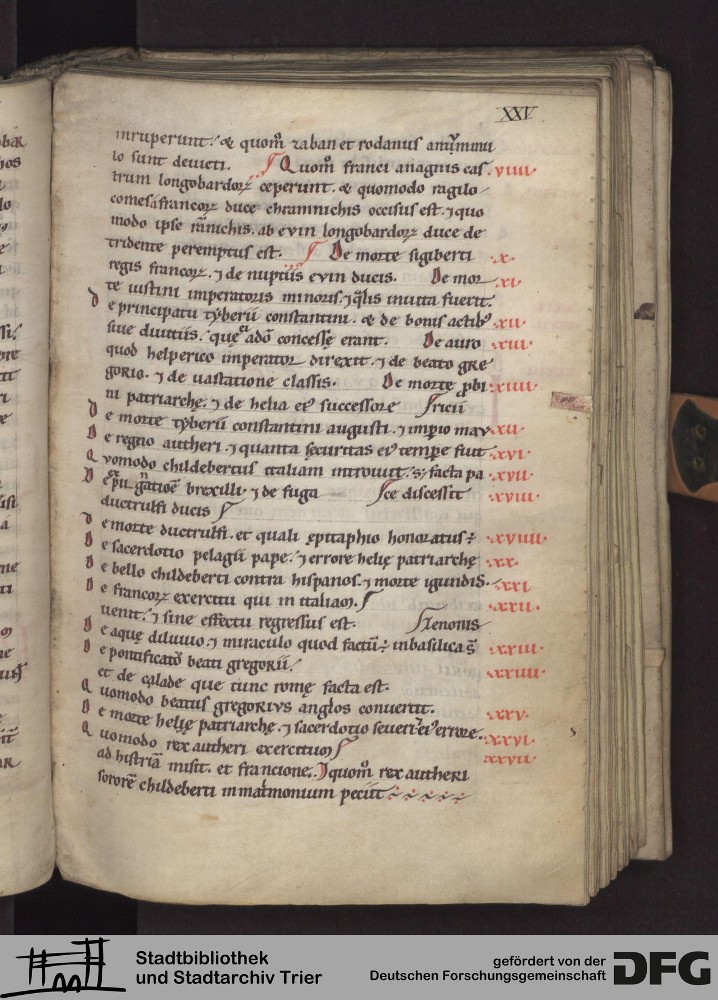 XXV
inruperunt. & quom̄ zaban et rodanus ab amone
io sunt deuicti. Quom̄ franci anagnis cas .VIIII.
trum longobardoꝝ ceperunt. & quomodo ragilo
comes a francoꝝ duce chramnichis occisus est. ⁊ quo
modo ipse rānichis. ab evin longobardoꝝ duce de
tridente peremptus est. De morte sigiberti .X.
regis francoꝝ. ⁊ de nuptiis evin ducis. De mor .XI.
te iustini imperatoris minoris. ⁊ q̄lis in uita fuerit.
De principatu tyberii constantini. & de bonis actib; .XII.
siue diuitiis. quę ei adō concessę erant. De auro .XIII.
quod helperico imperator direxit. ⁊ de beato gre
gorio. ⁊ de uastatione classis. De morte ꝓbi .XIIII.
ni patriarchę. ⁊ de helia ei' successore ricii
De morte tyberii constantini augusti. ⁊ imp̄io mau .XV.
De regno autheri. ⁊ quanta securitas ei' tempore fuit .XVI.
Quomodo childebertus italiam introiuit. s; facta pa .XVII.
De expu gnatioē brexilli. ⁊ de fuga ce discessit .XVIII.
ductrulfi ducis
De morte ductrulfi. et quali epitaphio honoratus ÷ .XVIIII.
De sacerdotio pelagii pape. ⁊ errore helię patriarchę .XX.
De bello childeberti contra hispanos. ⁊ morte igundis. .XXI.
De francoꝝ exercitu qui in italiam. .XXII.
uenit. ⁊ sine effectu regressus est. zenonis
De aquę diluuio. ⁊ miraculo quod factū ÷ in basilica s̄ .XXIII.
De pontificatō beati gregorii. .XXIIII.
et de calade que tunc romę facta est.
Quomodo beatus gregorius anglos conuertit. .XXV.
De morte helię patriarchę. ⁊ sacerdotio seueri ei' errore. .XXVI.
Quomodo rex autheri exercitum .XXVII.
ad histriā misit. et francione. ⁊ quom̄ rex autheri
sororē childeberti in matrimonium peciit
Stadtbibliothek
und Stadtarchiv Trier
gefördert von der
Deutschen Forschungsgemeinschaft
DFG